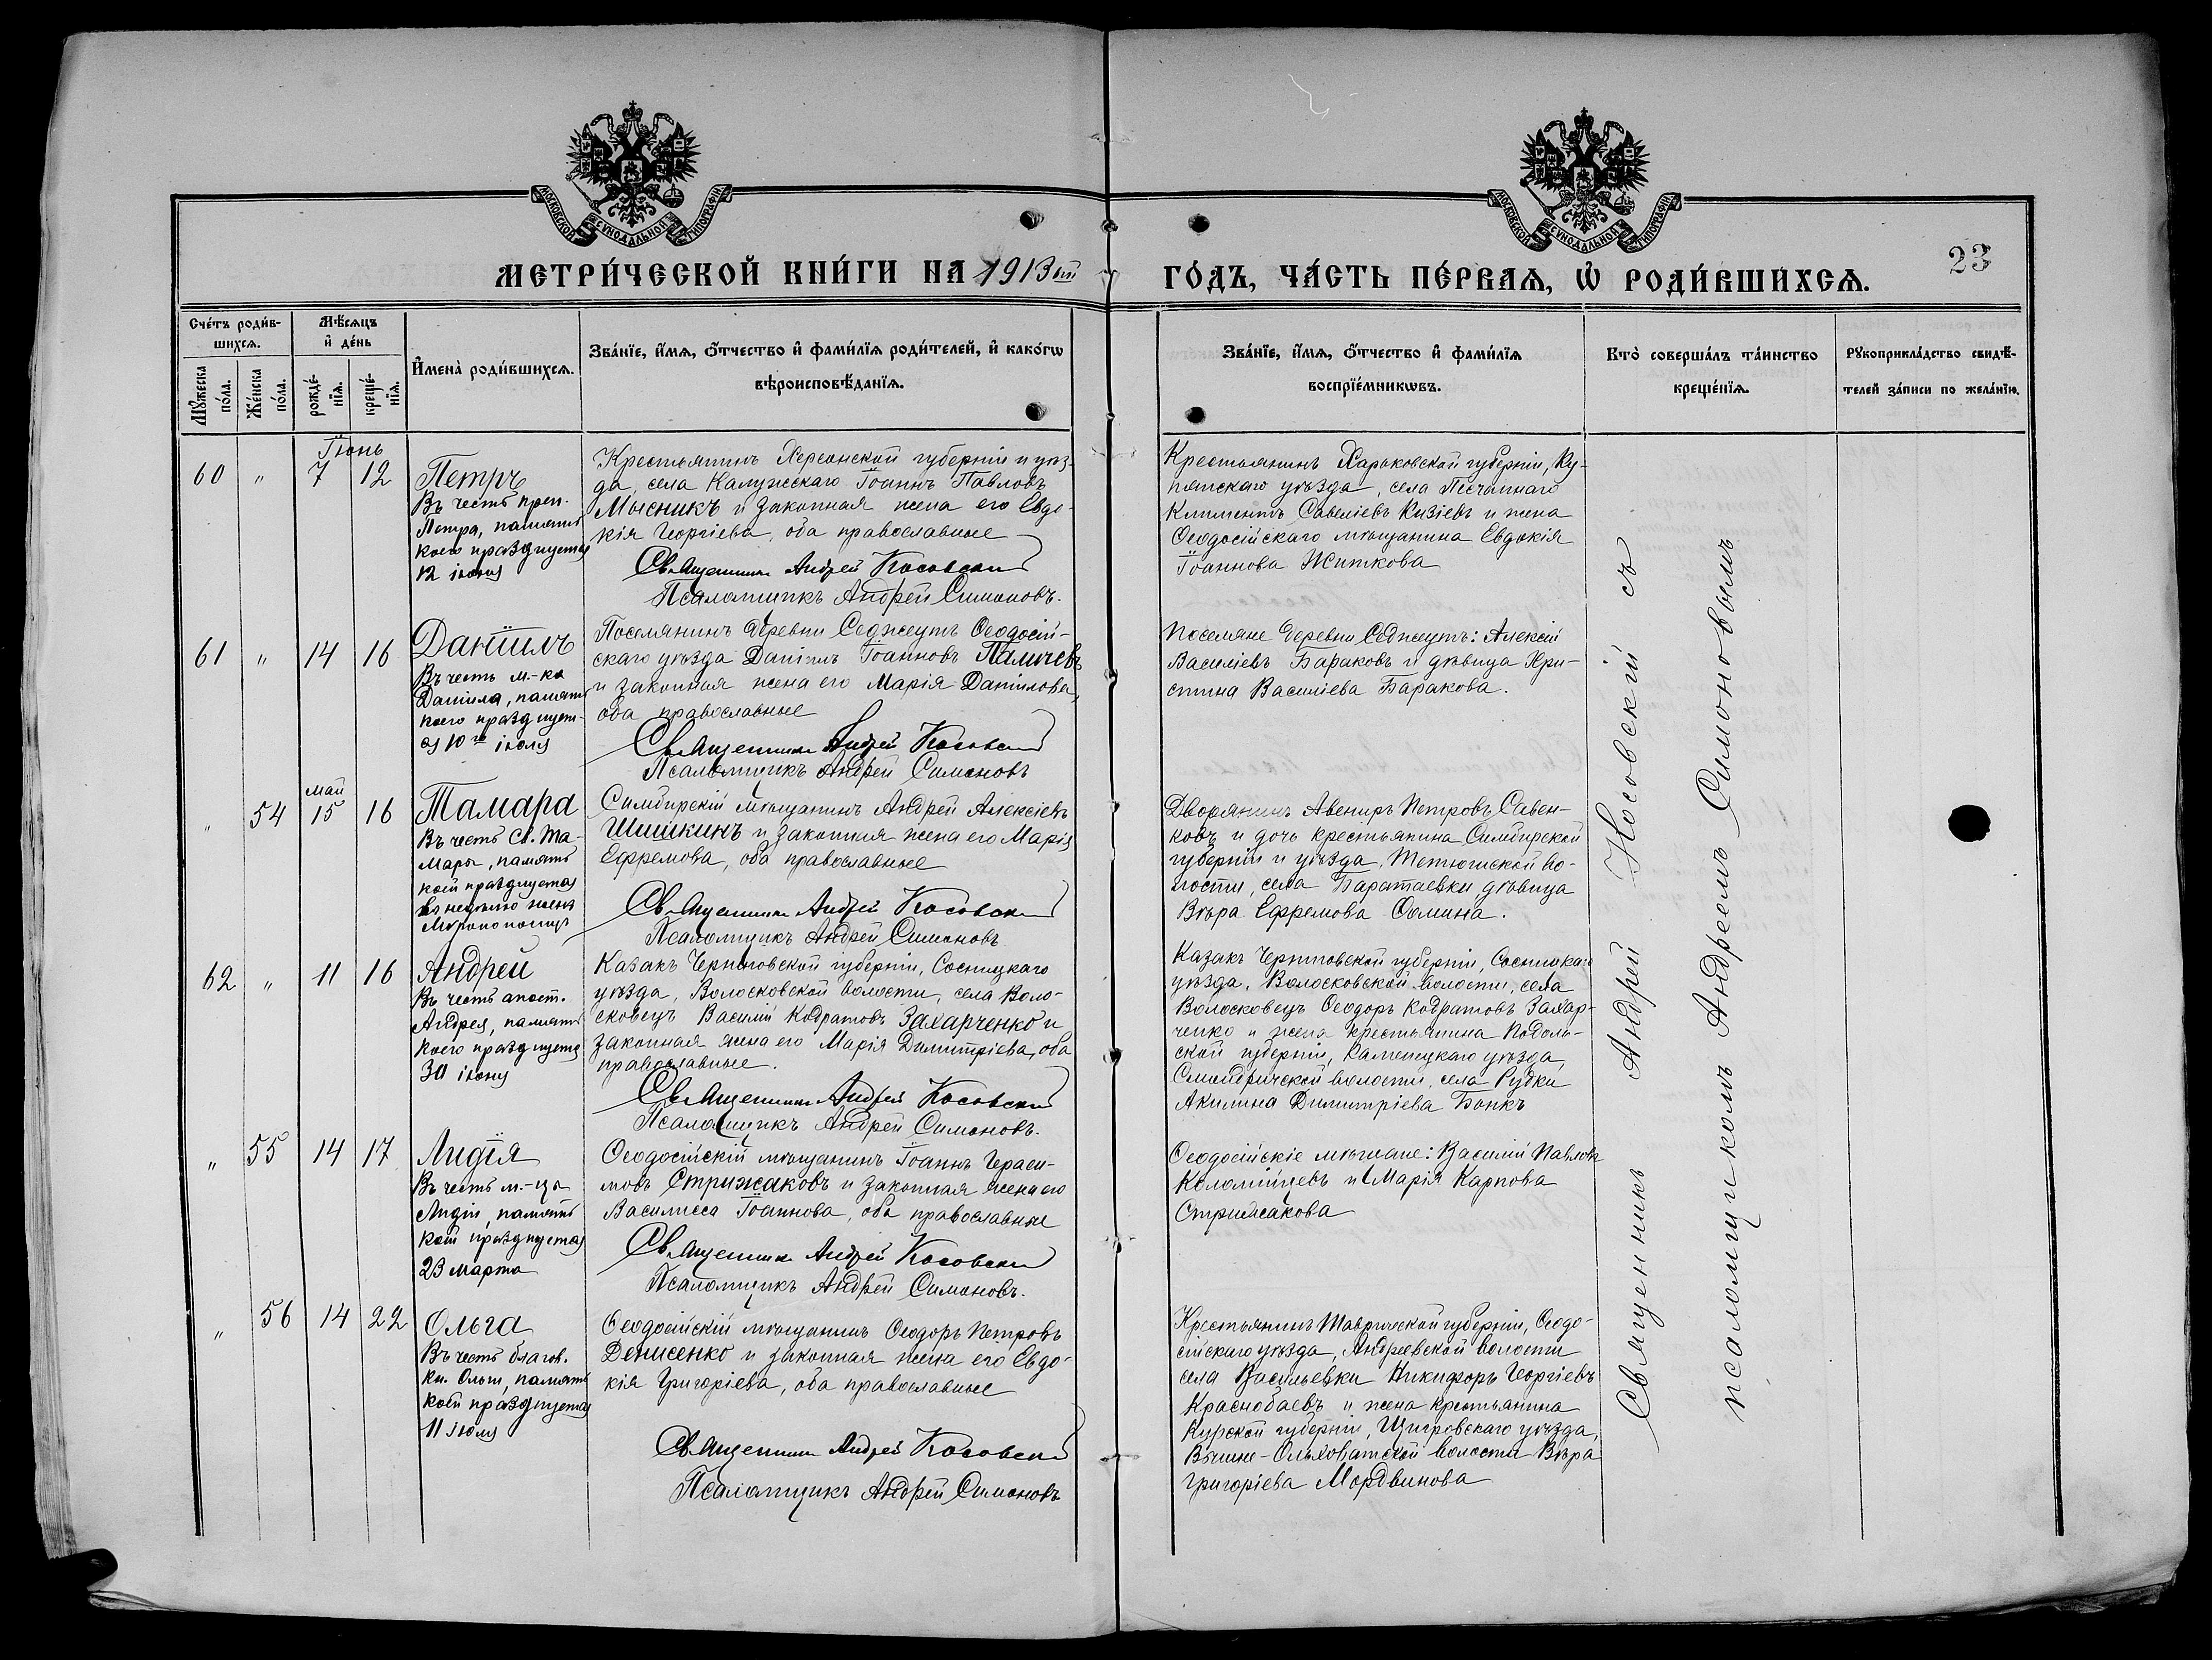 МОСКОВСКОЙ СѴНОДАЛЬНОЙ ТИПОГРАФІИ
МОСКОВСКОЙ СѴНОДАЛЬНОЙ ТИПОГРАФІИ
МЕТРИ́ЧЕСКОЙ КНИ́ГИ НА 1913ый
ГО́ДЪ, ЧА́СТЬ ПЕ́РВАѦ, Ѽ РОДИ́ВШИХСѦ.
23
Сче́тъ роди́в-
шихсѧ.
Мѣ́сѧцъ
и҆ де́нь
Мꙋ́жеска
по́ла.
Же́нска
по́ла.
рожде́-
нїѧ.
креще́-
нїѧ.
И҆мена̀ роди́вшихсѧ.
Зва́нїе, и҆́мѧ, ѻ҆́тчество и҆ фами́лїѧ роди́телей, и҆ како́гѡ
вѣроисповѣ́данїѧ.
Зва́нїе, и҆́мѧ, ѻ҆́тчество и҆ фами́лїѧ
воспрїе́мникѡвъ.
Кто̀ соверша́лъ та́инство
креще́нїѧ.
Рꙋкоприкла́дство свидѣ́-
телей за́писи по жела́нїю.
Іюнь
60 " 7 12
Петръ
Въ честь преп.
Петра, память
коего празднуется
12 іюня
Крестьянинъ Херсонской губерніи и уѣз-
да, села Калужскаго Іоаннъ Павловъ
Мысникъ и законная жена его Евдо-
кія Георгіева, оба православные
Священникъ Андрей Косовскій
Псаломщикъ Андрей Симоновъ.
Крестьянинъ Харьковской губерніи, Ку-
пянскаго уѣзда, села Песчаннаго
Климентъ Савеліевъ Кизіевъ и жена
Ѳеодосійскаго мѣщанина Евдокія
Іоаннова Житкова
61 " 14 16
Даніилъ
Въ честь м.-ка
Даніила, память
коего празднует-
ся 10го іюля
Поселянинъ деревни Седжеутъ Ѳеодосій-
скаго уѣзда Даніилъ Іоанновъ Паличевъ
и законная жена его Марія Даніилова,
оба православные
Священникъ Андрей Косовскій
Псаломщикъ Андрей Симоновъ
Поселяне деревни Седжеутъ: Алексій
Василіевъ Бараковъ и дѣвица Хри-
стина Василіева Баракова.
май
" 54 15 16
Тамара
Въ честь Св. Та-
мары, память
коей празднуется
въ недѣлю женъ
Мѵроносицъ
Симбирскій мѣщанинъ Андрей Алексіевъ
Шишкинъ и законная жена его Марія
Ефремова, оба православные
Священникъ Андрей Косовскій
Псаломщикъ Андрей Симоновъ
Дворянинъ Авениръ Петровъ Савен-
ковъ и дочь крестьянина Симбирской
губерніи и уѣзда, Тетюшской во-
лости, села Баратаевки дѣвица
Вѣра Ефремова Ѳомина.
62 " 11 16
Андрей
Въ честь апост.
Андрея, память
коего празднуется
30 іюня
Казакъ Черниговской губерніи, Сосницкаго
уѣзда, Волосковской волости, села Воло-
сковецъ Василій Кодратовъ Захарченко и
законная жена его Марія Димитріева, оба
православные.
Священникъ Андрей Косовскій
Псаломщикъ Андрей Симоновъ.
Казакъ Черниговской губерніи, Сосницкаго
уѣзда, Волосковской волости, села
Волосковецъ Ѳеодоръ Кодратовъ Захар-
ченко и жена крестьянина Подоль-
ской губерніи, Каменецкаго уѣзда,
Смотричской волости, села Рудки
Акилина Димитріева Бонкъ
" 55 14 17
Лидія
Въ честь м.-цы
Лидіи, память
коей празднуется
23 марта
Ѳеодосійскій мѣщанинъ Іоаннъ Гераси-
мовъ Стрижаковъ и законная жена его
Василисса Іоаннова, оба православные
Священникъ Андрей Косовскій
Псаломщикъ Андрей Симоновъ.
Ѳеодосійскіе мѣщане: Василій Павловъ
Коломійцевъ и Марія Карпова
Стрижакова
" 56 14 22
Ольга
Въ честь благов.
кн. Ольги, память
коей празднуется
11 іюля
Ѳеодосійскій мѣщанинъ Ѳеодоръ Петровъ
Денисенко и законная жена его Евдо-
кія Григоріева, оба православные
Священникъ Андрей Косовскій
Псаломщикъ Андрей Симоновъ
Крестьянинъ Таврической губерніи, Ѳеодо-
сійскаго уѣзда, Андреевской волости
села Васильевки Никифоръ Георгіевъ
Краснобаевъ и жена крестьянина
Курской губерніи, Щигровскаго уѣзда,
Вышне-Ольховатской волости Вѣра
Григоріева Мордвинова
Священникъ Андрей Косовскій съ
псаломщикомъ Андреемъ Симоновымъ